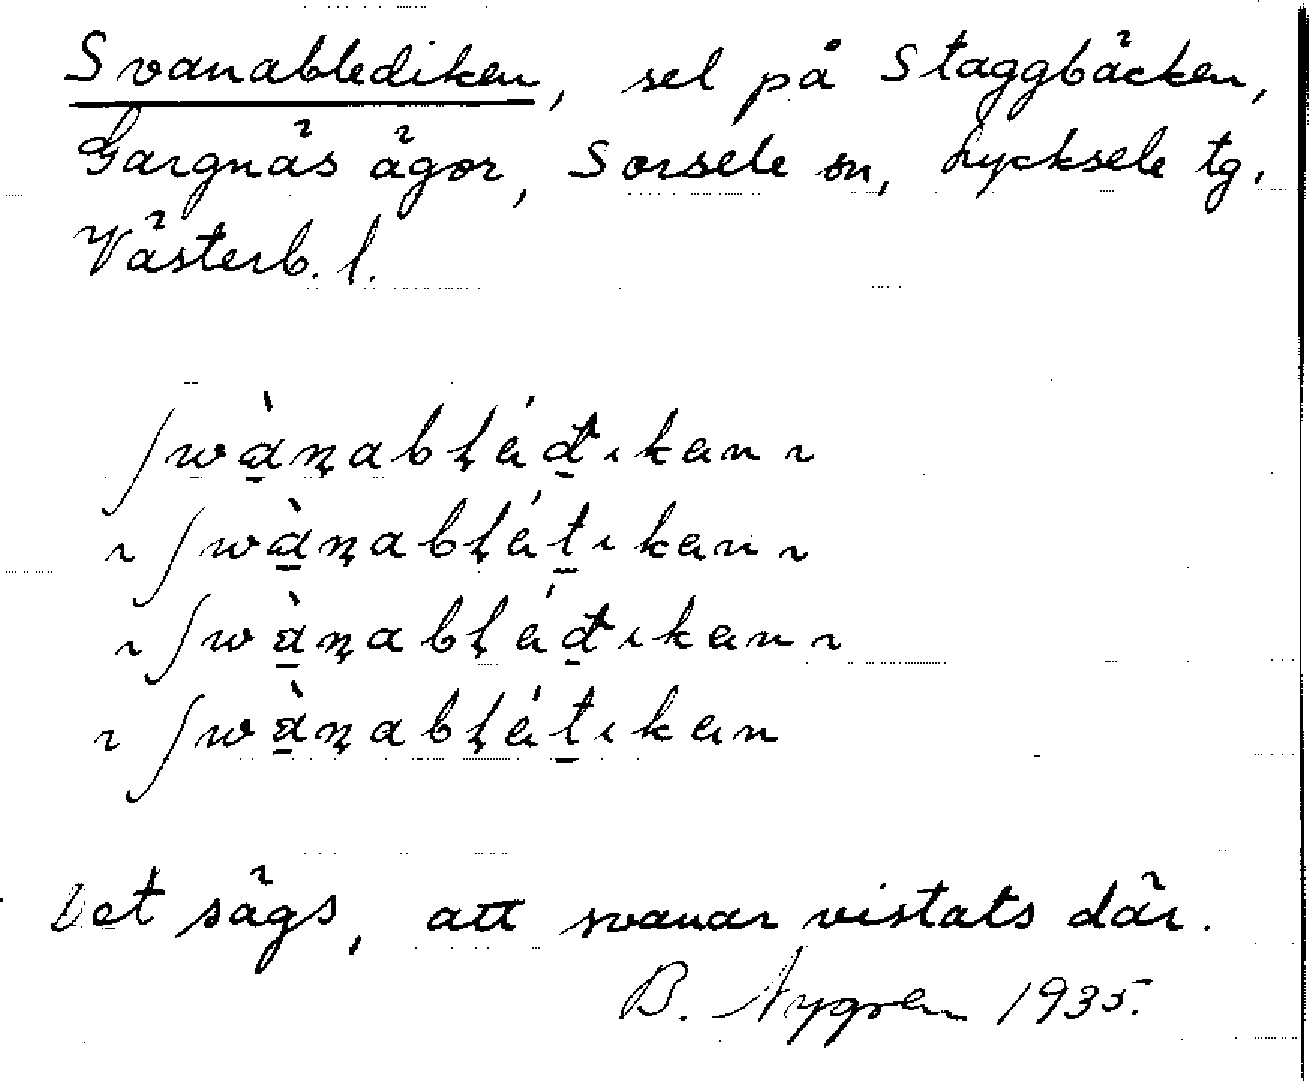 Svanablediken, sel på Staggbäcken,
Gargnäs ägor, Sorsele sn, Lycksele tg.
Västerb. l.
ʃwàṇabḷéđıken ~
~ ʃwàṇabḷétıkan ~
~ ʃwàṇabḷéđıkan ~
~ ʃwàṇabḷétıken
Det sägs, att svanar vistats där.
B. Nygren 1935.